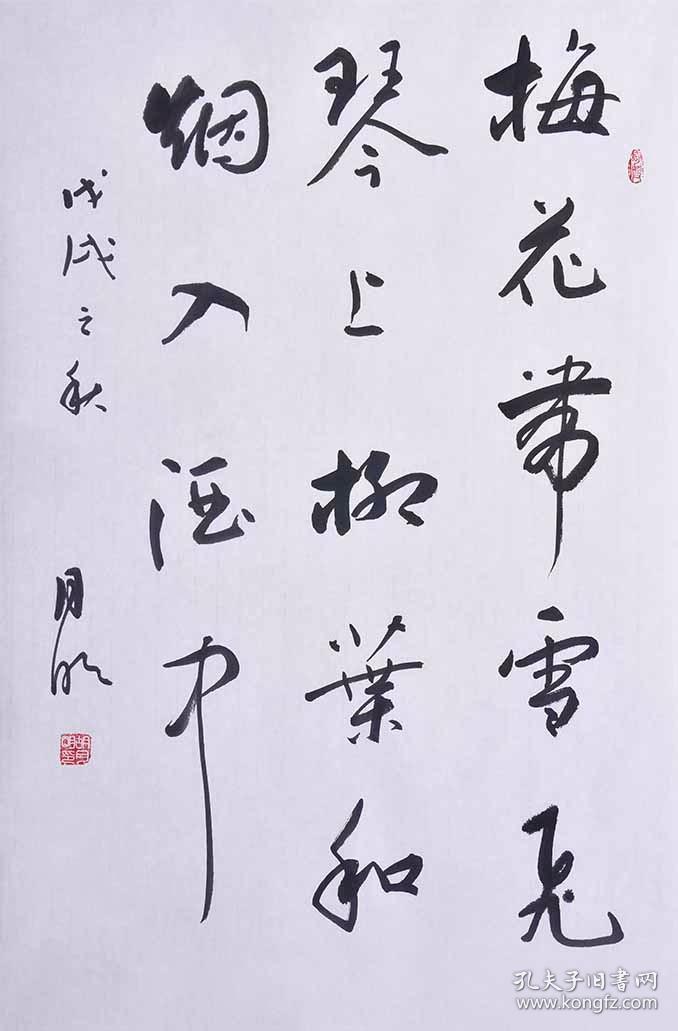 梅花帶雪飛
琴上柳葉和
烟入酒中
戊戌之秋
月明
孔夫子旧书网
www.kongfz.com